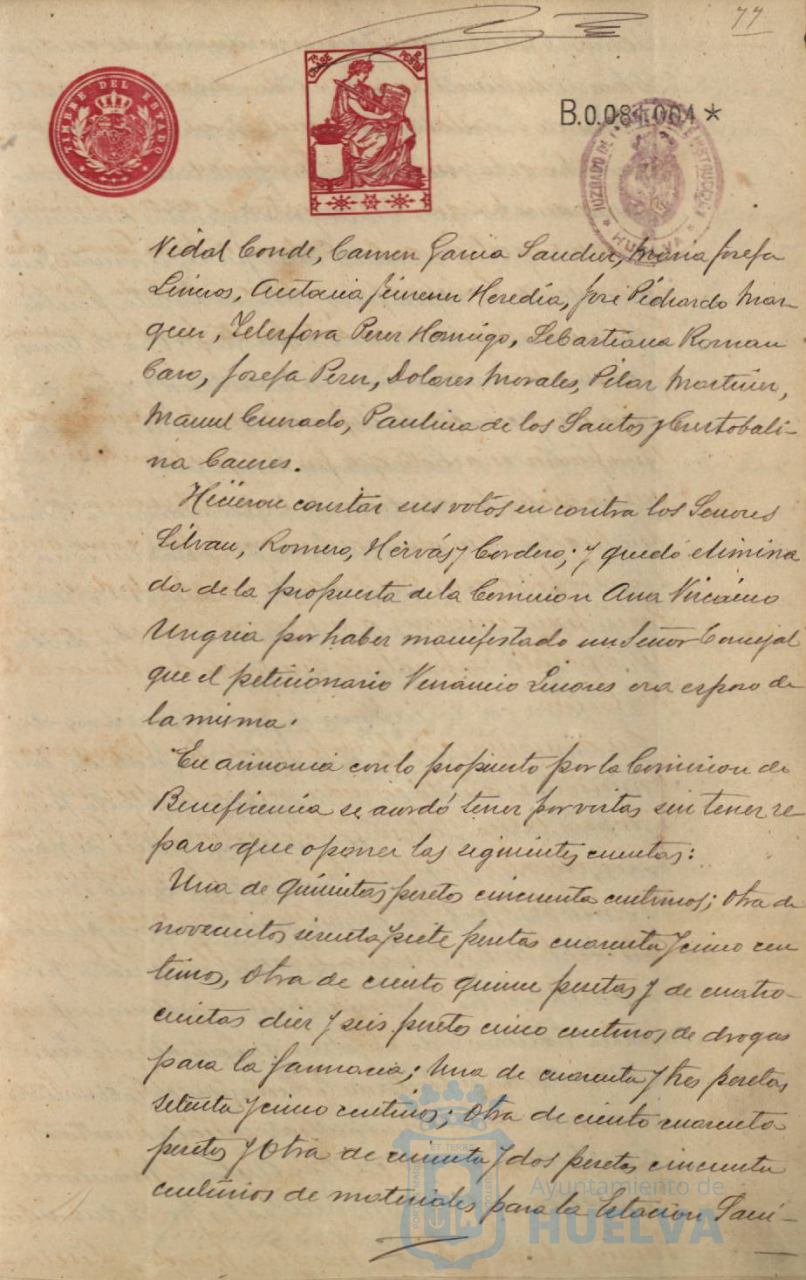 77
TIMBRE DEL ESTADO
7ª CLASE
PESETAS
B.0.081.004 *
JUZGADO DE INSTRUCCION
HUELVA
Vidal Conde, Carmen Garcia Sanchez, Maria Josefa
Linares, Antonia Jimenez Heredia, José Pichardo Mar-
quez, Telesfora Perez Hornigo, Sebastiana Roman
Caro, Josefa Perez, Dolores Morales, Pilar Martinez,
Manuel Cumado, Paulina de los Santos y Cristobali-
na Caceres.
Hicieron constar sus votos en contra los Señores
Silvan, Romero, Hervás y Cordero; y quedó elimina
da de la propuesta de la Comision Ana Vizcaino
Ungria por haber manifestado un Señor Concejal
que el peticionario Venancio Linares era esposo de
la misma.
En armonia con lo propuesto por la Comision de
Beneficencia se acordó tener por vistas sin tener re
paro que oponer las siguientes cuentas:
Una de quinientas pesetas cincuenta centimos; otra de
novecientas sesenta y siete pesetas cuarenta y cinco cen
timos, otra de ciento quince pesetas y de cuatro-
cientas diez y seis pesetas cinco centimos de drogas
para la farmacia; una de cuarenta y tres pesetas
setenta y cinco centimos; otra de ciento cuarenta
pesetas y otra de cincuenta y dos pesetas cincuenta
centimos de materiales para la Estacion Sani-
Ayuntamiento de
HUELVA